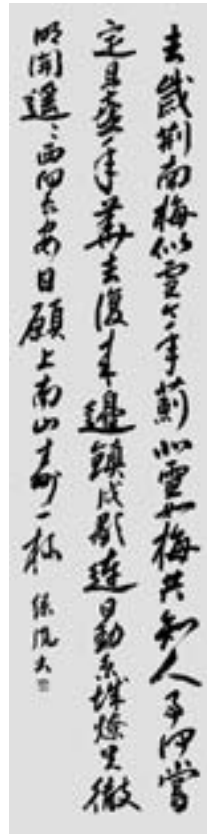 去歲荆南梅似雪今年薊北雪如梅共知人事何嘗
定且喜年華去復来邊鎮戍歌連日動京城燎火徹
明開遥々西向長安日願上南山壽一杯